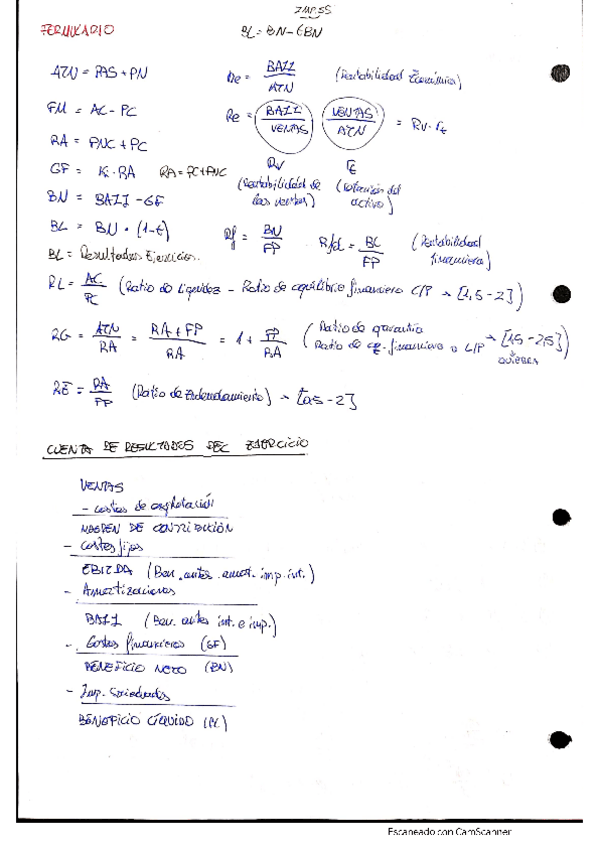 IMP.SS
FORMULARIO
BL = BN - tBN
ATN = PAS + PN
Re = BAII / ATN (Rentabilidad Económica)
FM = AC - PC
Re = BAII / VENTAS VENTAS / ATN = Rv · rt
RA = PNC + PC
Rv rt
GF = Ki · RA RA = PC + PNC
(Rentabilidad de las ventas) (rotación del activo)
BN = BAII - GF
BL = BN · (1-t)
Rf = BN / FP Rfd = BL / FP (Rentabilidad financiera)
BL = Resultados Ejercicio.
RL = AC / PC (Ratio de Liquidez - Ratio de equilibrio financiero C/P → [1,5 - 2])
RG = ATN / RA = RA + FP / RA = 1 + FP / RA (Ratio de garantía → [1,5 - 2,5]
Ratio de eq. financiero a L/P)
RE = RA / FP (Ratio de Endeudamiento) → [0,5 - 2]
CUENTA DE RESULTADOS DEL EJERCICIO
VENTAS
- costes de explotación
MARGEN DE CONTRIBUCIÓN
- Costes fijos
EBITDA (Ben. antes. amort. imp. int.)
- Amortizaciones
BAII (Ben. antes int. e imp.)
- Gastos financieros (GF)
BENEFICIO NETO (BN)
- Imp. Sociedades
BENEFICIO LÍQUIDO (BL)
Escaneado con CamScanner